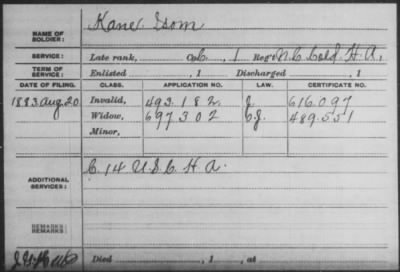 NAME OF SOLDIER: Kane Isom
SERVICE: Late rank, Co. C, 1 Reg't N.C. Cold. H.A.
TERM OF SERVICE: Enlisted , 1 Discharged , 1
DATE OF FILING. CLASS. APPLICATION NO. LAW. CERTIFICATE NO.
1883 Aug 20. Invalid, 493.182 J. 616.097
Widow, 697302 489.551
Minor,
ADDITIONAL SERVICES: C. 14 U.S.C.H.A.
REMARKS:
REMARKS:
Died , 1 , at